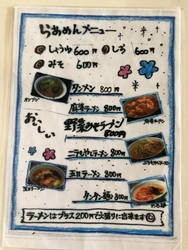 らあめんメニュー
しょうゆ 600円 しお 600円
みそ 600円
タンメン 800円
麻婆ラーメン 800円
おいしい
野菜みそラーメン
800円
ニラもやしラーメン 800円
五目ラーメン 800円
タンタン麺 800円
ラーメンはプラス200円で大盛りに出来ます